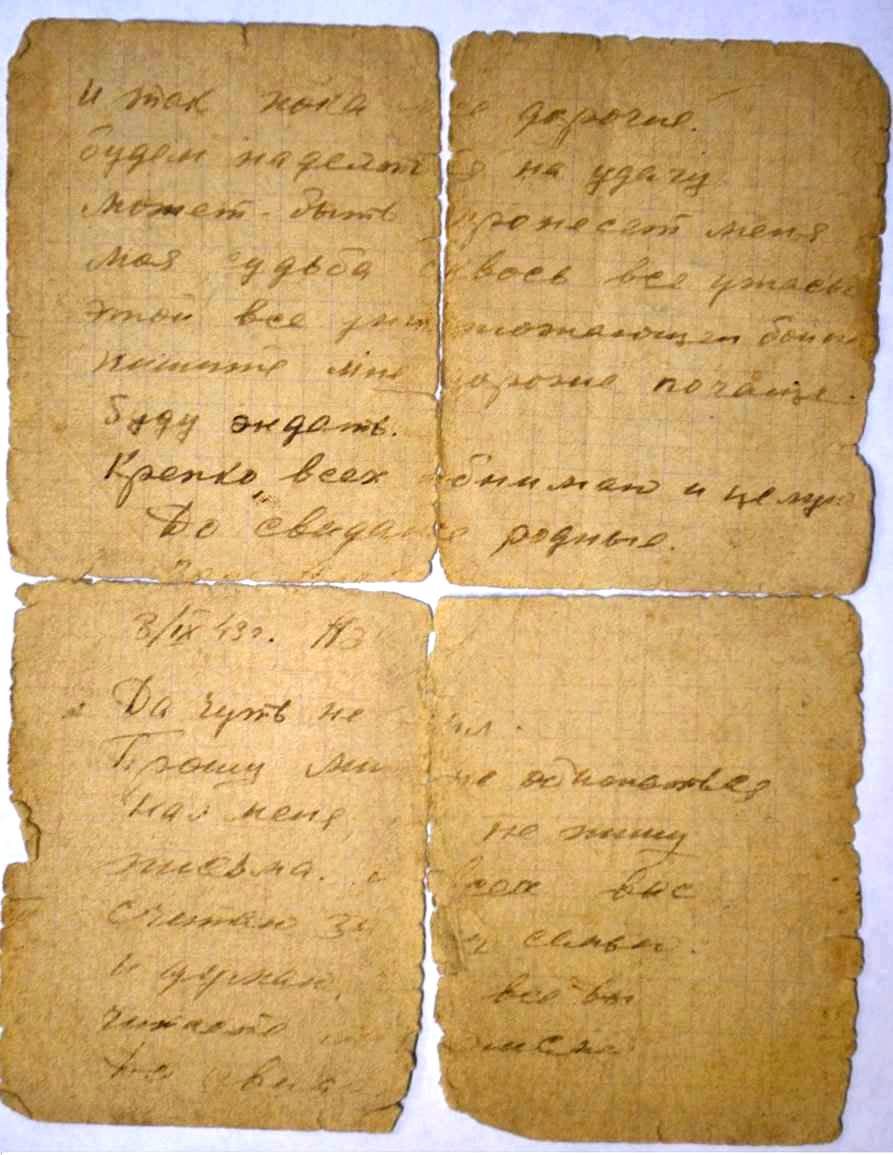 И так пока все дорогие.
будем надеяться на удачу
может-быть пронесет меня
моя судьба сквозь все ужасы
этой все уничтожающей бойни
пишите мне дорогие почаще.
Буду ждать.
Крепко всех обнимаю и целую
До свиданье родные.
3/IX 43г.
Да чуть не
Прошу не обижаться
на меня, не пишу
письма. всех вас
считаю семьи.
и думаю, все вы
читаете
До свида